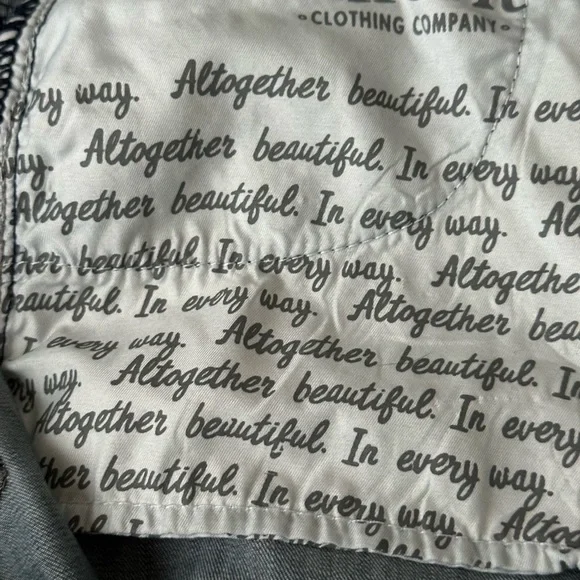 •CLOTHING COMPANY•
way. Altogether beautiful. In eve
way. Altogether beautiful. In every way
Altogether beautiful. In every way. Al
ther beautiful. In every way. Altogethe
eautiful. In every way. Altogether bea
I every way. Altogether beautiful. In
way. Altogether beautiful. In every
Altogether beautiful. In every way.
ther beautiful. In every way. Altoge